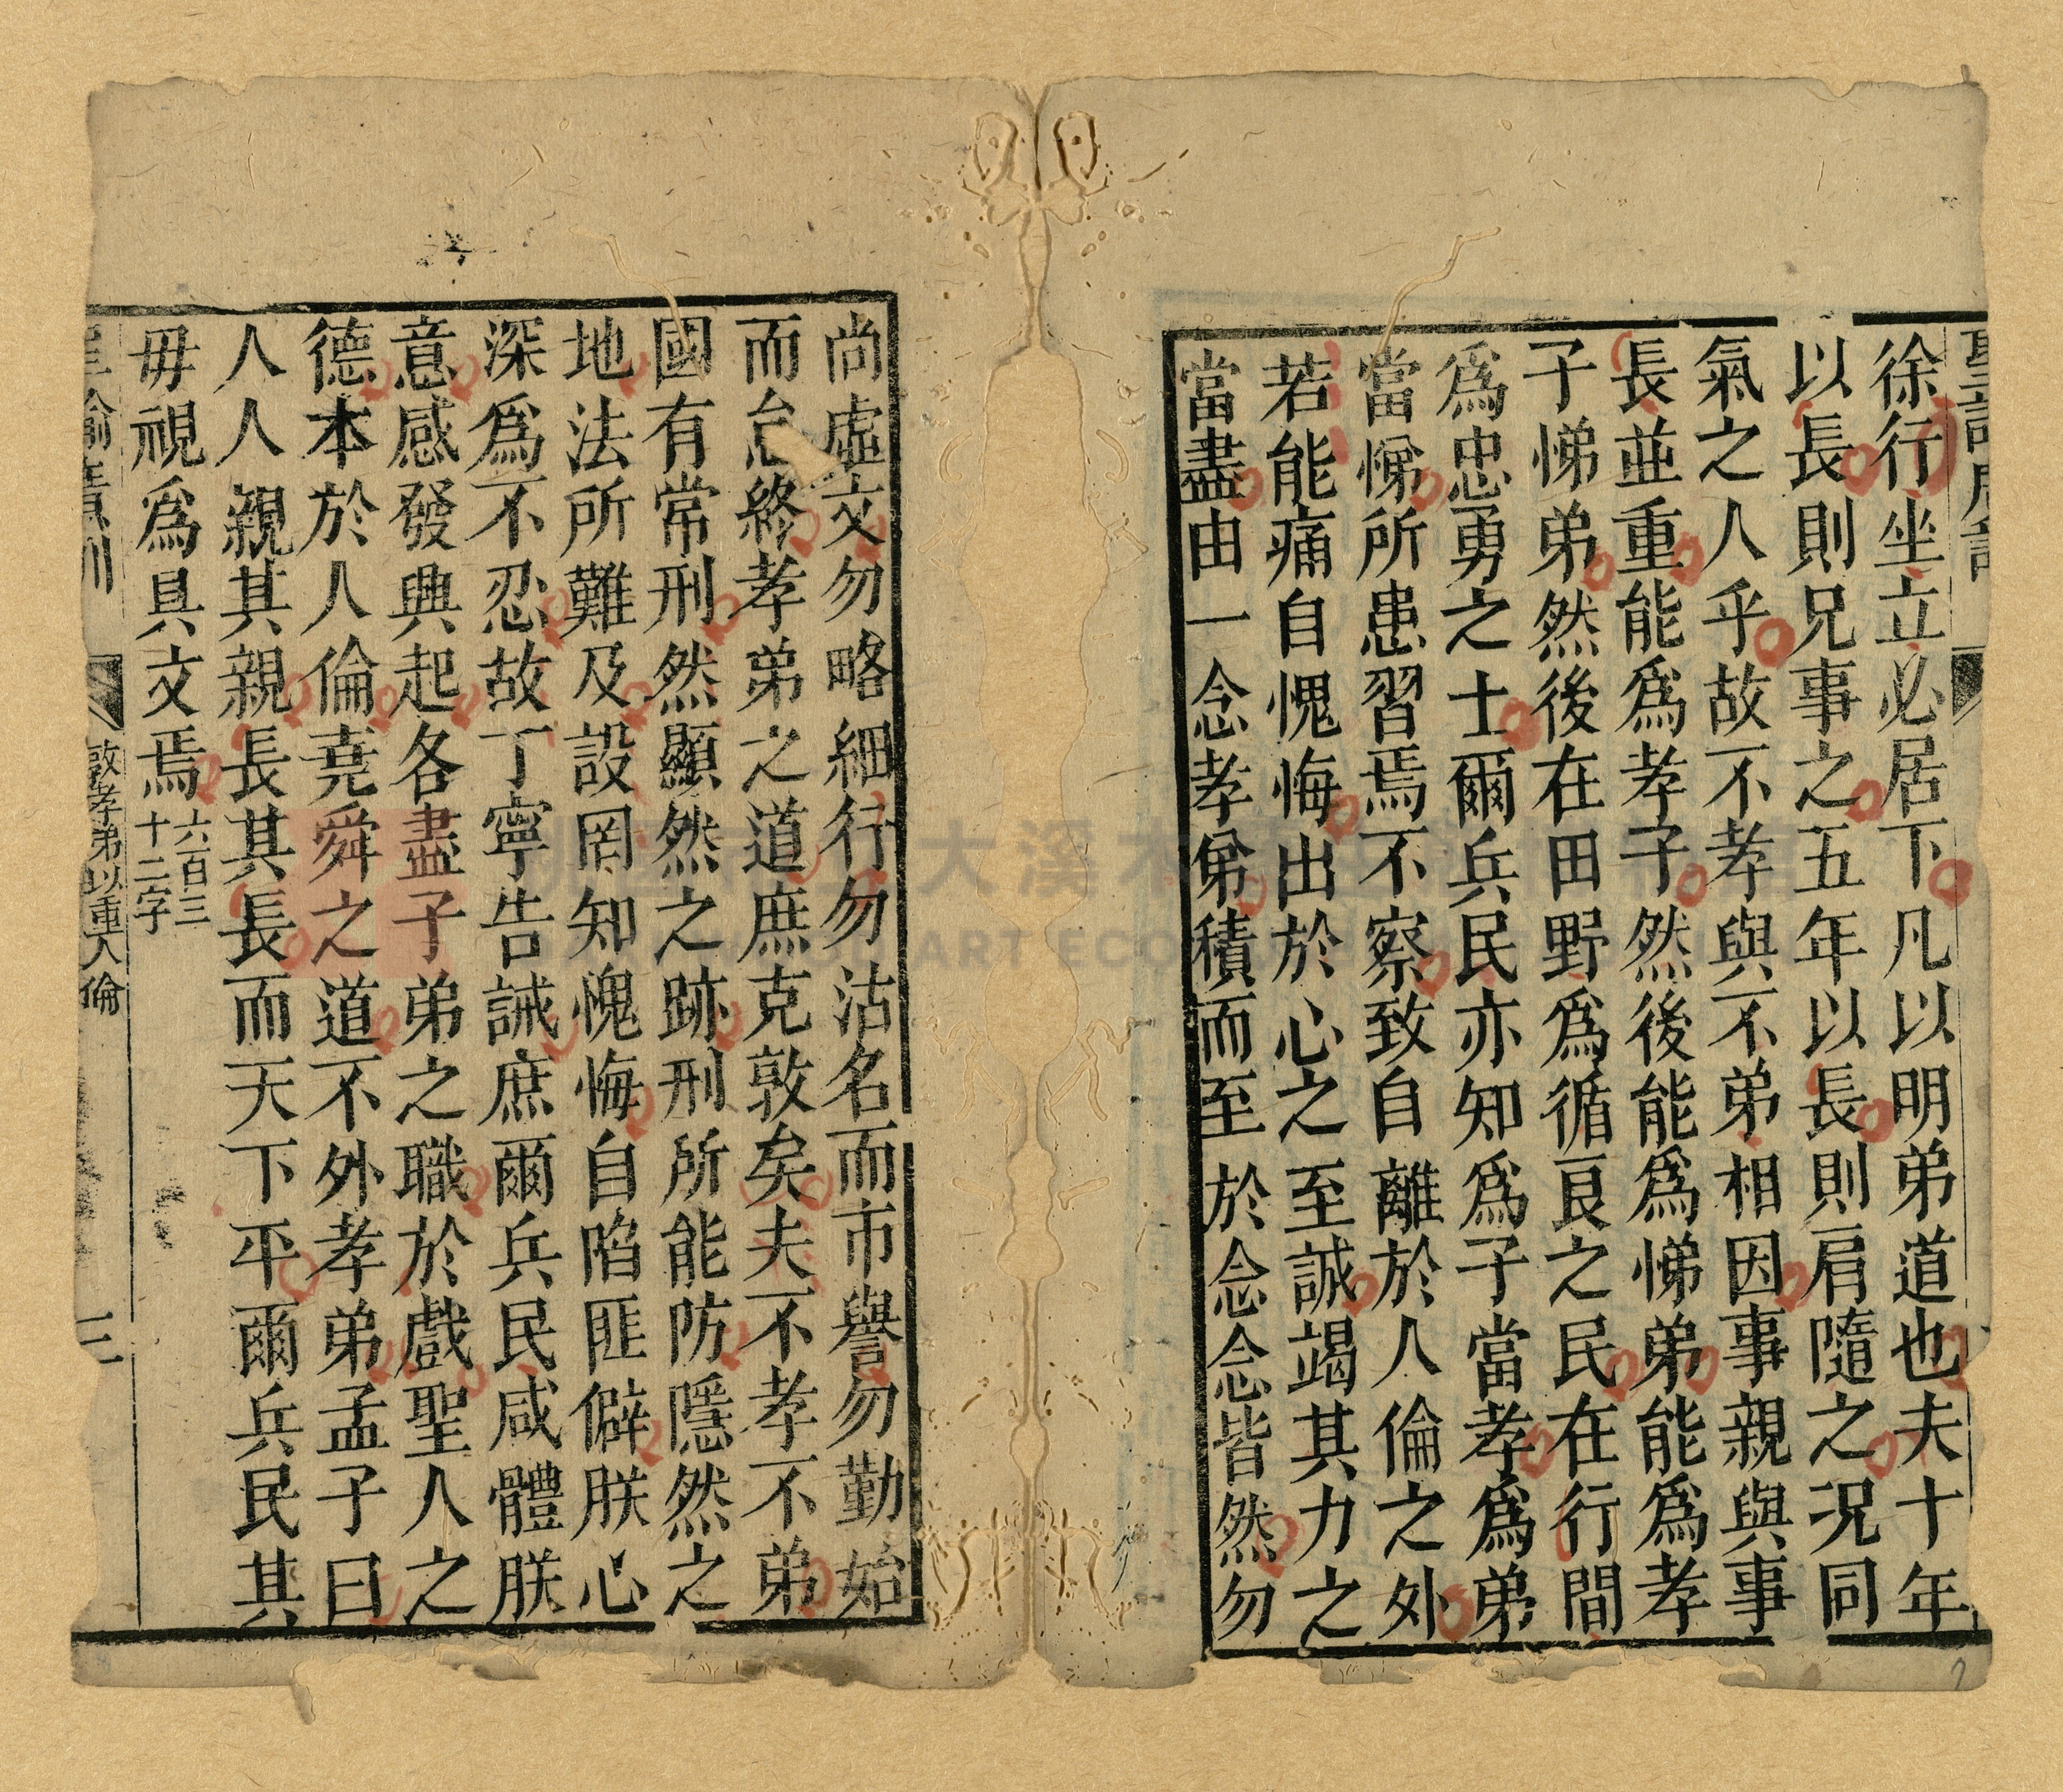 徐行坐立必居下凡以明弟道也夫十年
以長則兄事之五年以長則肩隨之況同
氣之人乎故不孝與不弟相因事親與事
長並重能為孝子然後能為悌弟能為孝
子悌弟然後在田野為循良之民在行間
為忠勇之士爾兵民亦知為子當孝為弟
當悌所患習焉不察致自離於人倫之外
若能痛自愧悔出於心之至誠竭其力之
當盡由一念孝弟積而至於念念皆然勿
尚虛文勿略細行勿沽名而市譽勿勤始
而怠終孝弟之道庶克敦矣夫不孝不弟
國有常刑然顯然之跡刑所能防隱然之
地法所難及設罔知愧悔自陷匪僻朕心
深為不忍故丁寧告誡庶爾兵民咸體朕
意感發興起各盡子弟之職於戲聖人之
德本於人倫堯舜之道不外孝弟孟子曰
人人親其親長其長而天下平爾兵民其
毋視為具文焉六百三十二字
敦孝弟以重人倫
三
大溪
ART ECO